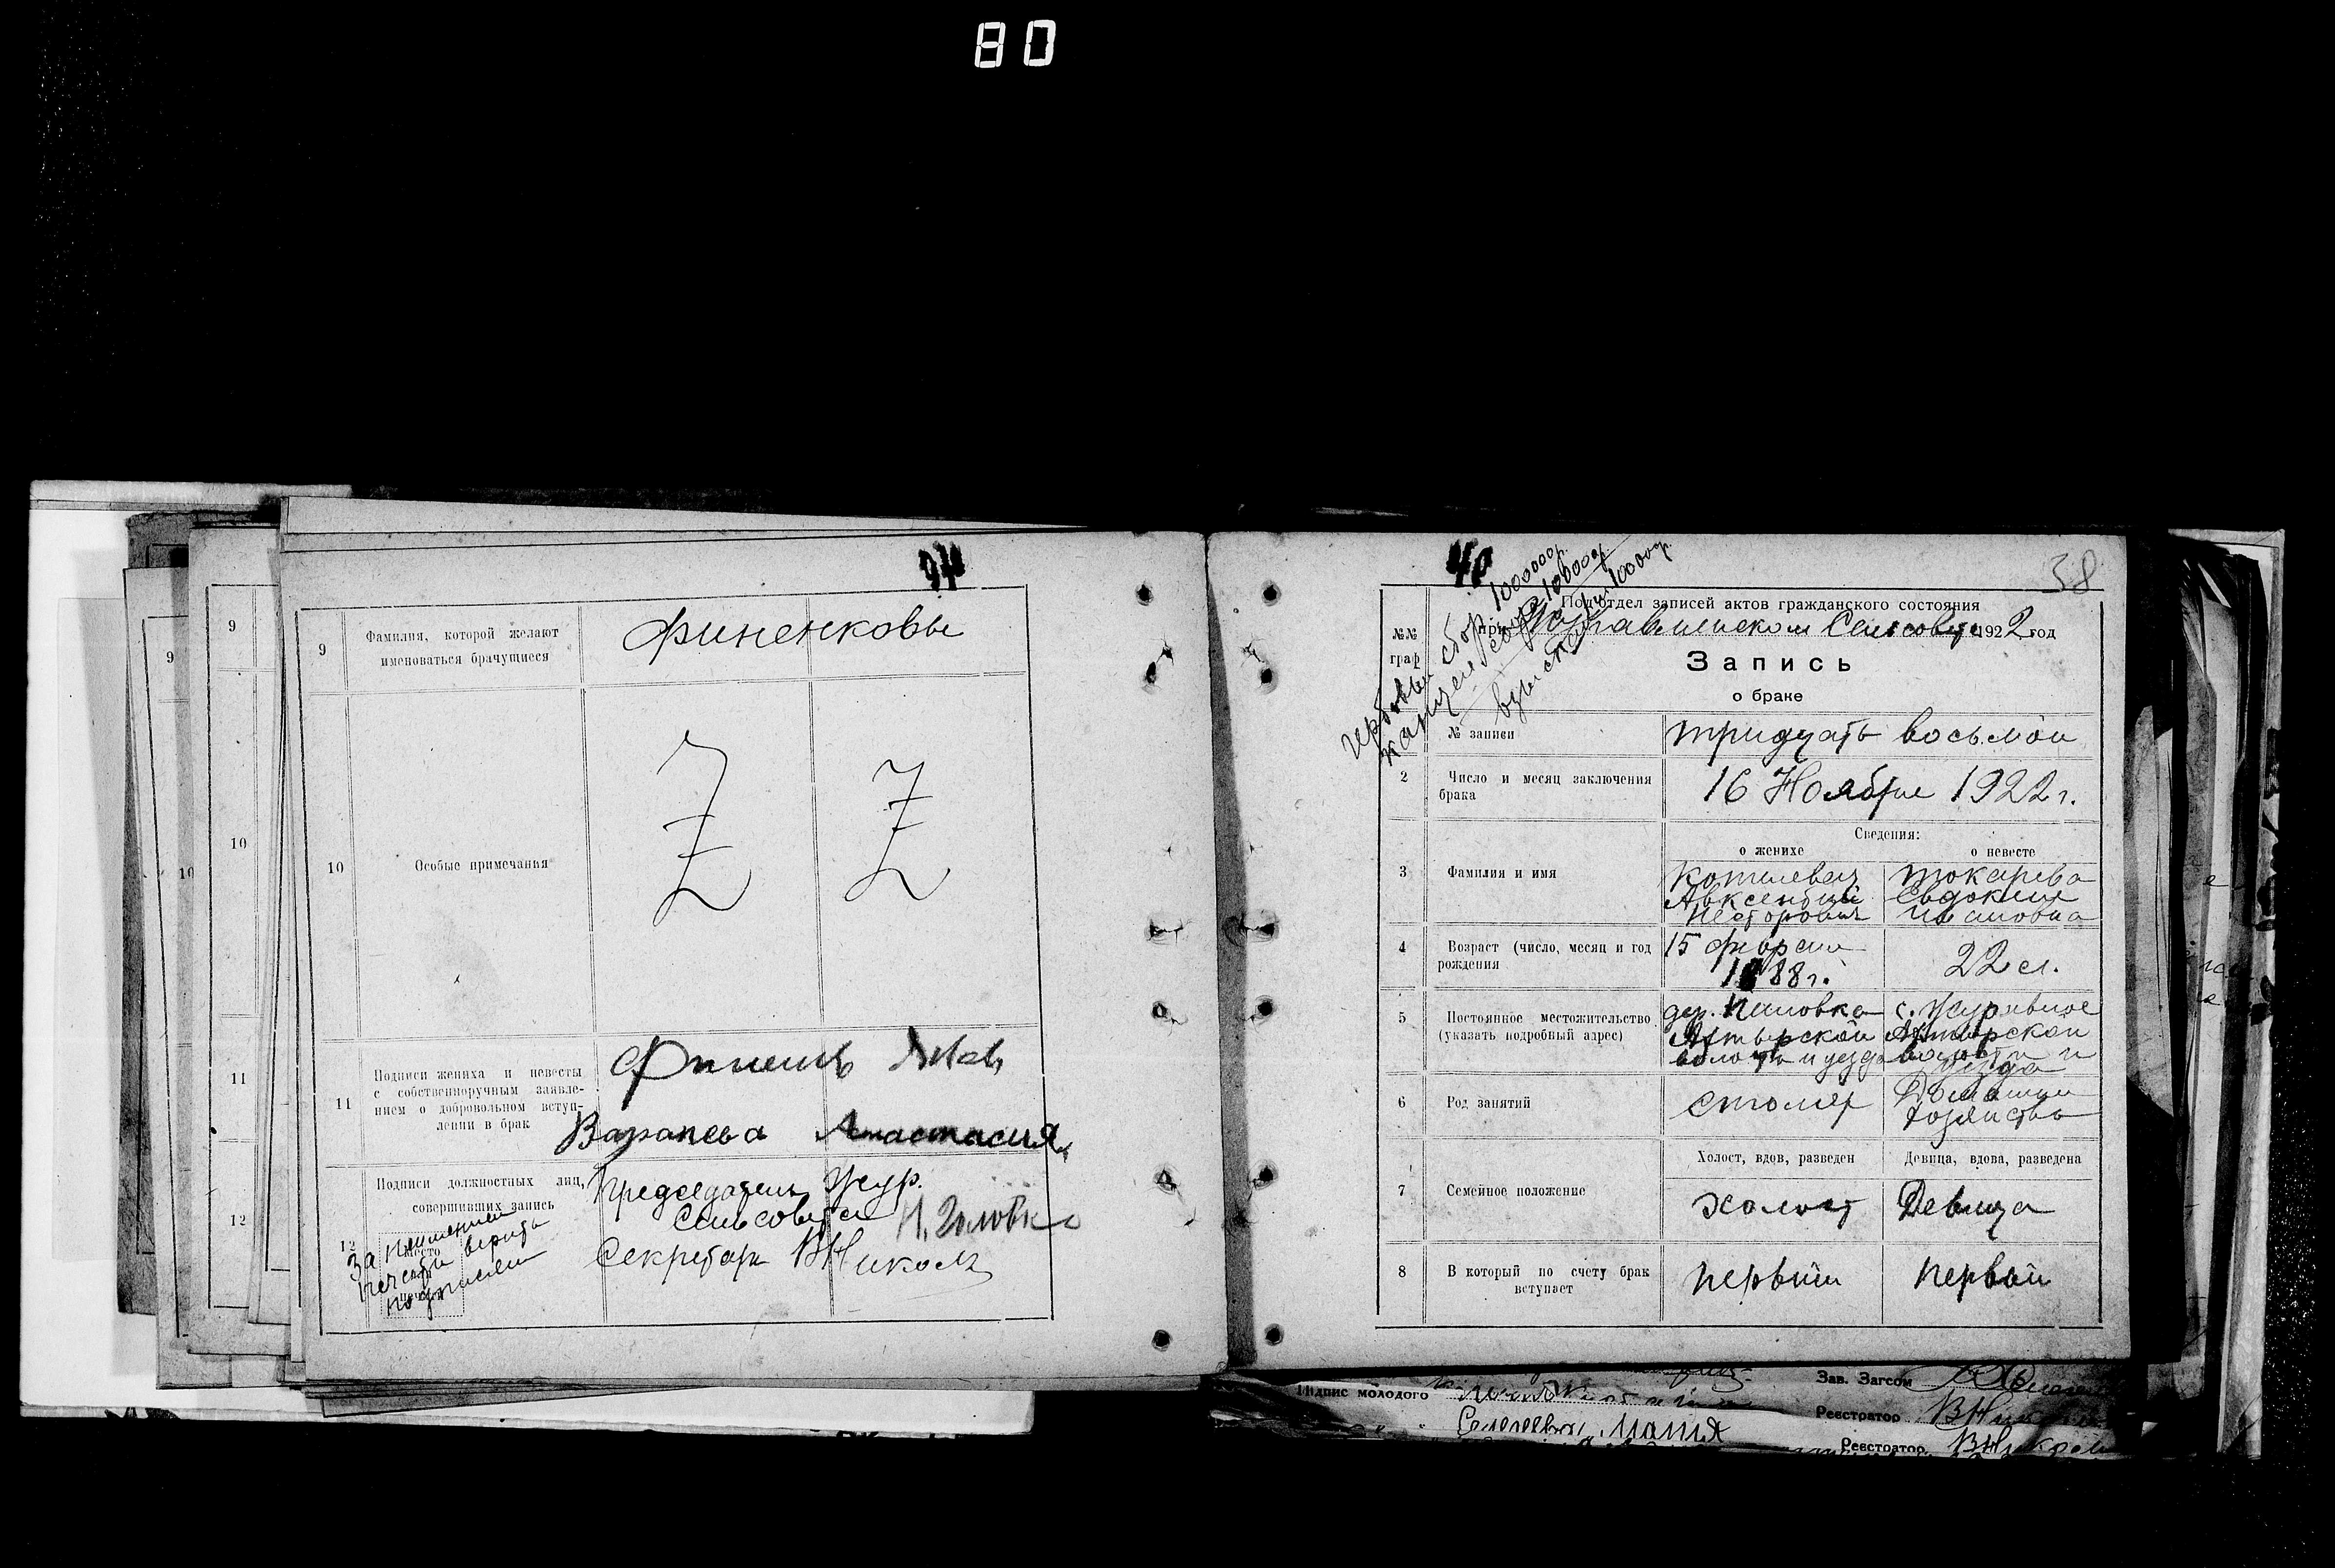 80
94
9
Фамилия, которой желают
именоваться брачущиеся
Финенковы
10
Особые примечания
11
Подписи жениха и невесты
с собственноручным заявле-
нием о добровольном вступ-
лении в брак
Анастасия
12
Подписи должностных лиц,
совершивших запись
Председатель Жур.
Сельсовета Н. Головко
Секретарь
За неимением
печати верить
подписям
место
9
10
11
12
9
10
40
38
гербовый сбор 1000000р.
взыскан
№№
граф
Подотдел записей актов гражданского состояния
при Журавленском Сельсовете 1922 год
Запись
о браке
№ записи
тридцать восьмой
2
Число и месяц заключения
брака
16 Ноября 1922 г.
Сведения:
о женихе
о невесте
3
Фамилия и имя
Котелевец
Авксентий
Несторович
Токарева
Евдокия
Ивановна
4
Возраст (число, месяц и год
рождения
15 февраля
1888 г.
22 л.
5
Постоянное местожительство
(указать подробный адрес)
дер.
Ахтырской
волости и уезда
с. Журавное
Ахтырской
волости и
уезда
6
Род занятий
столяр
Домашн
хозяйство
7
Семейное положение
Холост, вдов, разведен
Девица, вдова, разведена
холост
Девица
8
В который по счету брак
вступает
первый
первый
Підпис молодого
Зав. Загсом
Реєстратор
Реєстратор